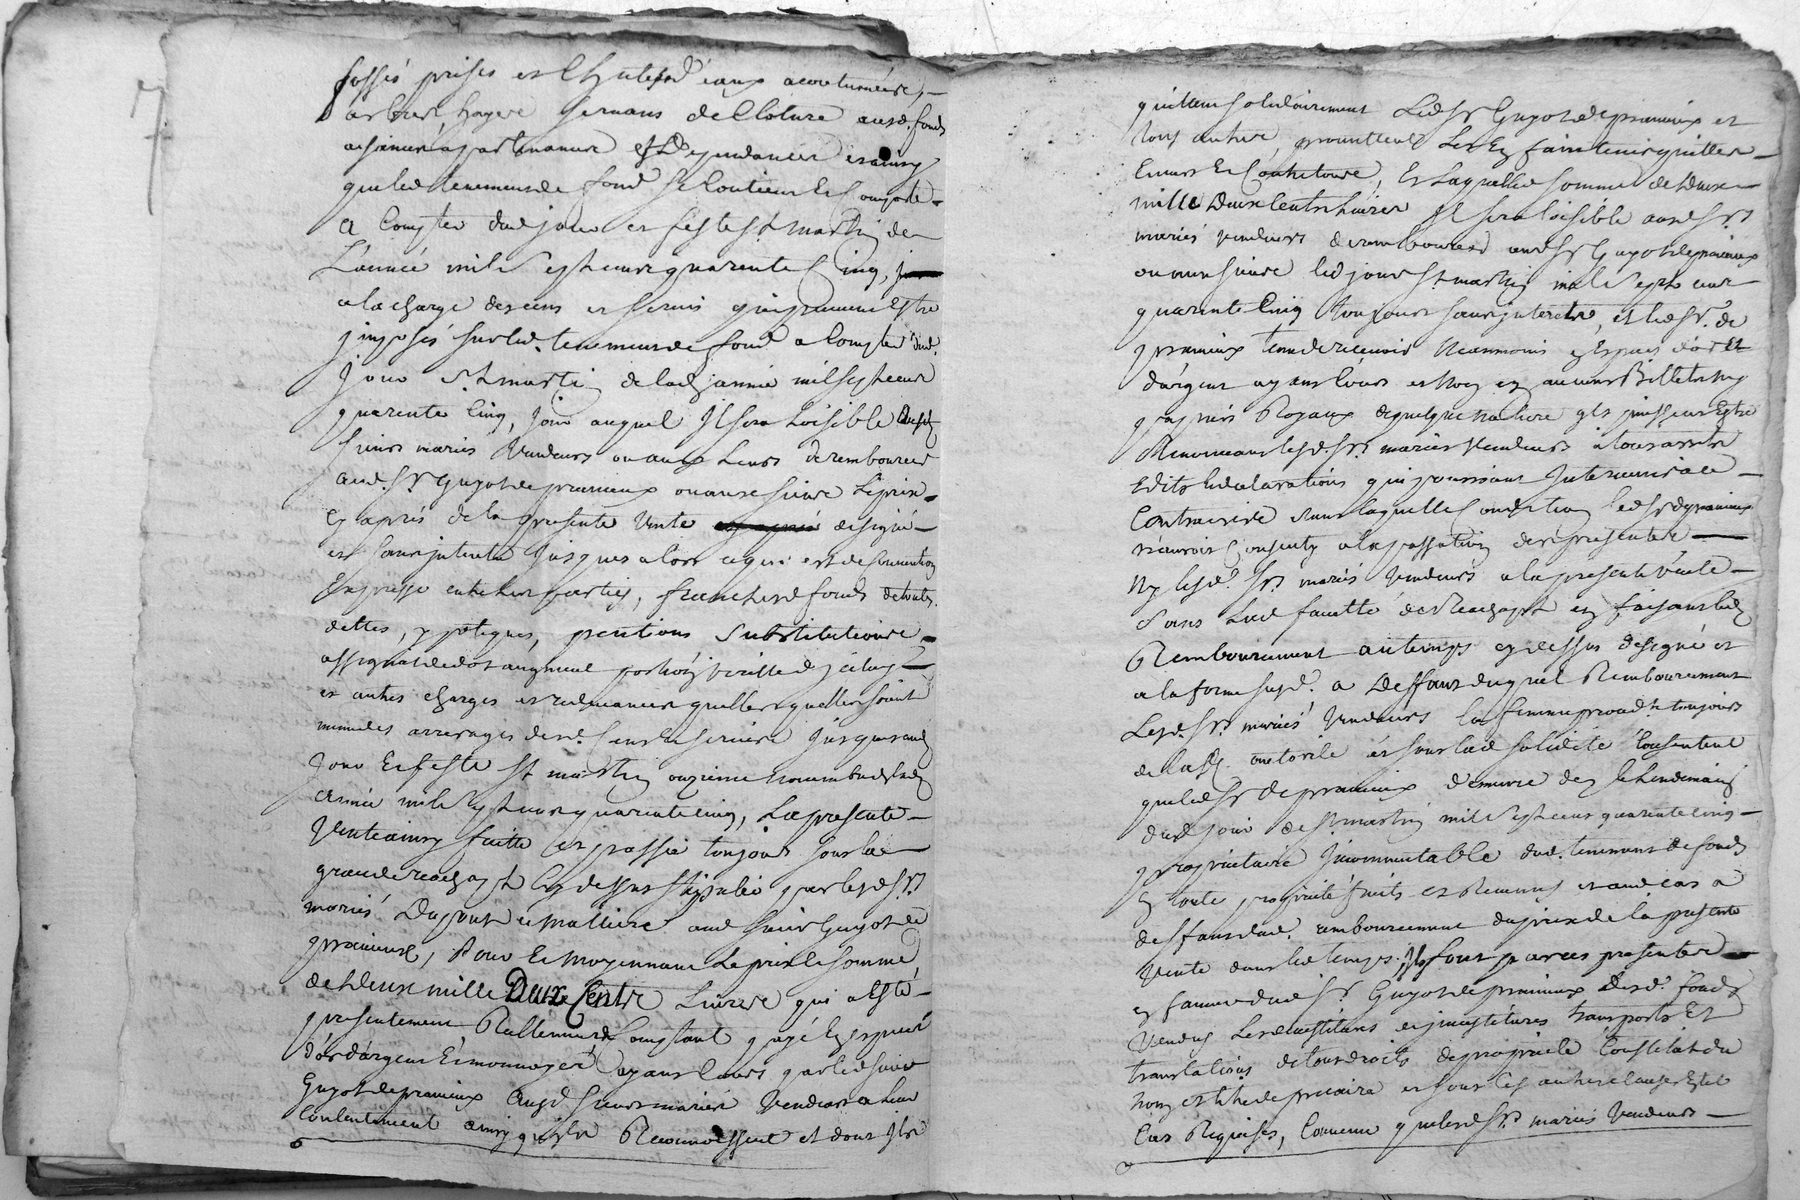 fossés prises et chute d'eaux acoutumées,
arbres hayes servans de cloture ausd. fonds
aisances apartenances et dependances et ainsy
que led. tenement de fond se contient et comporte
a compter dud. jour et feste st martin de
l'année mil sept cent quarente cinq,
a la charge des cens et servis qui peuvent estre
imposés sur led. tenement de fond a compter dud.
jour st martin de lad. année mil sept cent
quarente cinq, jour auquel il sera loisible ausd.
sieurs mariés vendeurs ou aux leurs de rembourser
aud. sr Guyot de pramieux ou aux siens le prix
cy aprés de la presente vente designé
et sans interets jusques alors ce qui est de convention
expresse entre les parties, franc lesd. fonds de toutes
dettes, ypoteques, pentions substitutions
assignats de dot augment
et autres charges et redevances quelles quelles soient
mesme des arrerages desd. cens et servis jusques aud.
jour et feste st martin onzieme novembre de lad.
année mil sept cent quarente cinq, la presente
vente ainsy faitte et passée toujours sous la
grace de reachapt cy dessus stipulée par lesd. srs
mariés Dupont et Malliere aud. sieur Guyot de
pramieux, pour et moyennant le prix et somme
de deux mille Deux Cents livres qui a esté
presentement réellement comptant payé en especes
d'or d'argent et monnoyes ayant cours par led. sieur
Guyot de pramieux auxd. sieurs mariés vendeurs a leur
contentement ainsy qu'ils le reconnoissent et dont ils
quittent solidairement led. sr Guyot de pramieux et
tous autres, promettent les en faire tenir quittes
envers et contre tous, et laquelle somme de deux
mille deux cents livres il sera loisible auxd. srs
mariés vendeurs de rembourser aud. sr Guyot de pramieux
ou aux siens led. jour st martin mil sept cent
quarente cinq toujours sans interets, et led. sr. de
pramieux tenu de recevoir neanmoins en especes d'or et
d'argent ayant cours et non en aucuns Billets ny
papiers Royaux de quelque nature qu'ils puissent estre
Renonceant lesd. srs mariés vendeurs a tous arrets
Edits declarations qui pourroient intervenir a ce
contraires sans laquelle condition led. sr de pramieux
n'auroit consenty a la passation des presentes
ny lesd. srs mariés vendeurs a la presente vente
sans lad. faculté de Reachapt en faisant led.
Remboursement au temps cy dessus designé et
a la forme susd. a deffaut duquel Remboursement
lesd. srs mariés vendeurs la femme proced. te toujours
de lad. autorité et sous lad. solidité consentent
que led. sr de pramieux demeure des le lendemain
dud. jour de st martin mil sept cent quarente cinq
proprietaire incommutable dud. tenement de fonds
en toute proprieté fruits et Revenus et aud. cas a
deffaut dud. remboursement du prix de la presente
vente dans led. temps, ils font par ces presentes
en faveur dud. sr. Guyot de pramieux desd. fonds
vendus les devestitures et investitures transports et
translations de tous droits de proprieté constitut du
nom et titre de precaire et sous les autres clauses et
cas Requises, convenu que lesd. srs. mariés vendeurs